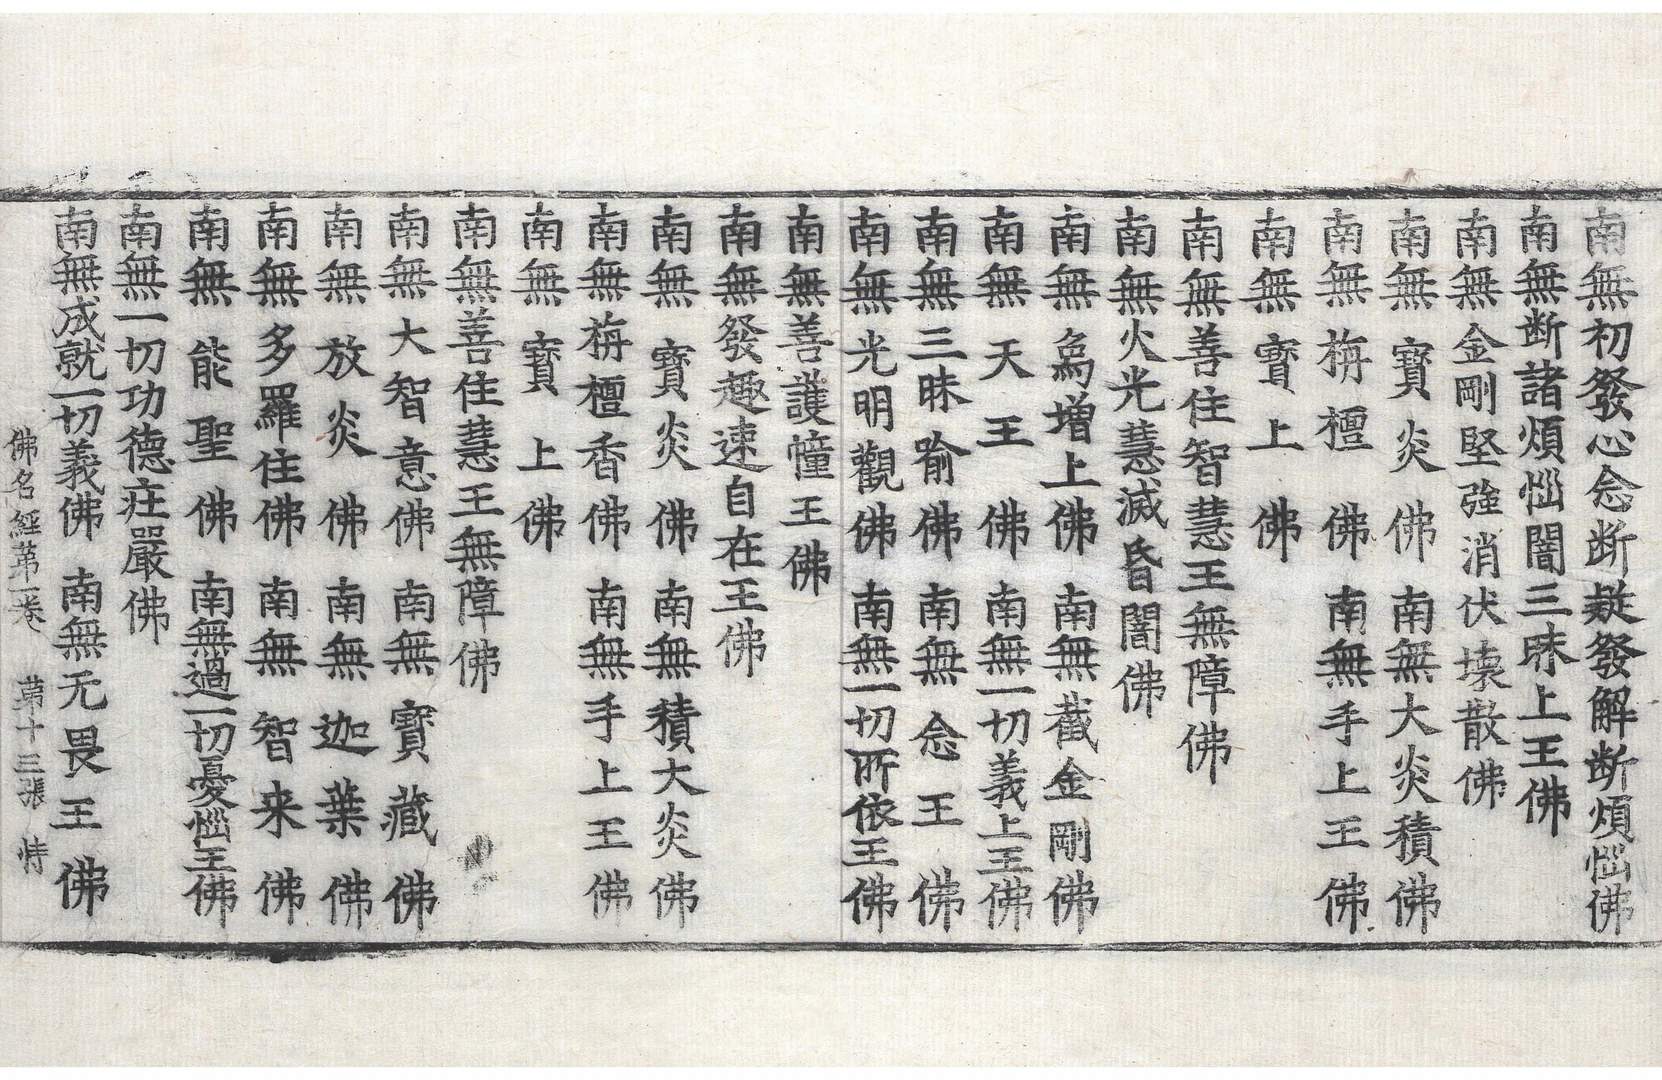 南無初發心念断疑發解断煩惱佛
南無断諸煩惱闇三昧上王佛
南無金剛堅強消伏壊散佛
南無寳炎佛 南無大炎積佛
南無栴檀佛 南無手上王佛
南無寳上佛
南無善住智慧王無障佛
南無火光慧滅昏闇佛
南無為增上佛 南無截金剛佛
南無天王佛 南無一切義上王佛
南無三昧喻佛 南無念王佛
南無光明觀佛 南無一切所依王佛
南無善護幢王佛
南無發趣速自在王佛
南無寳炎佛 南無積大炎佛
南無栴檀香佛 南無手上王佛
南無寳上佛
南無善住慧王無障佛
南無大智意佛 南無寳藏佛
南無放炎佛 南無迦葉佛
南無多羅住佛 南無智来佛
南無能聖佛 南無過一切憂惱王佛
南無一切功德莊嚴佛
南無成就一切義佛 南無无畏王佛
佛名經苐一卷 苐十三張 恃